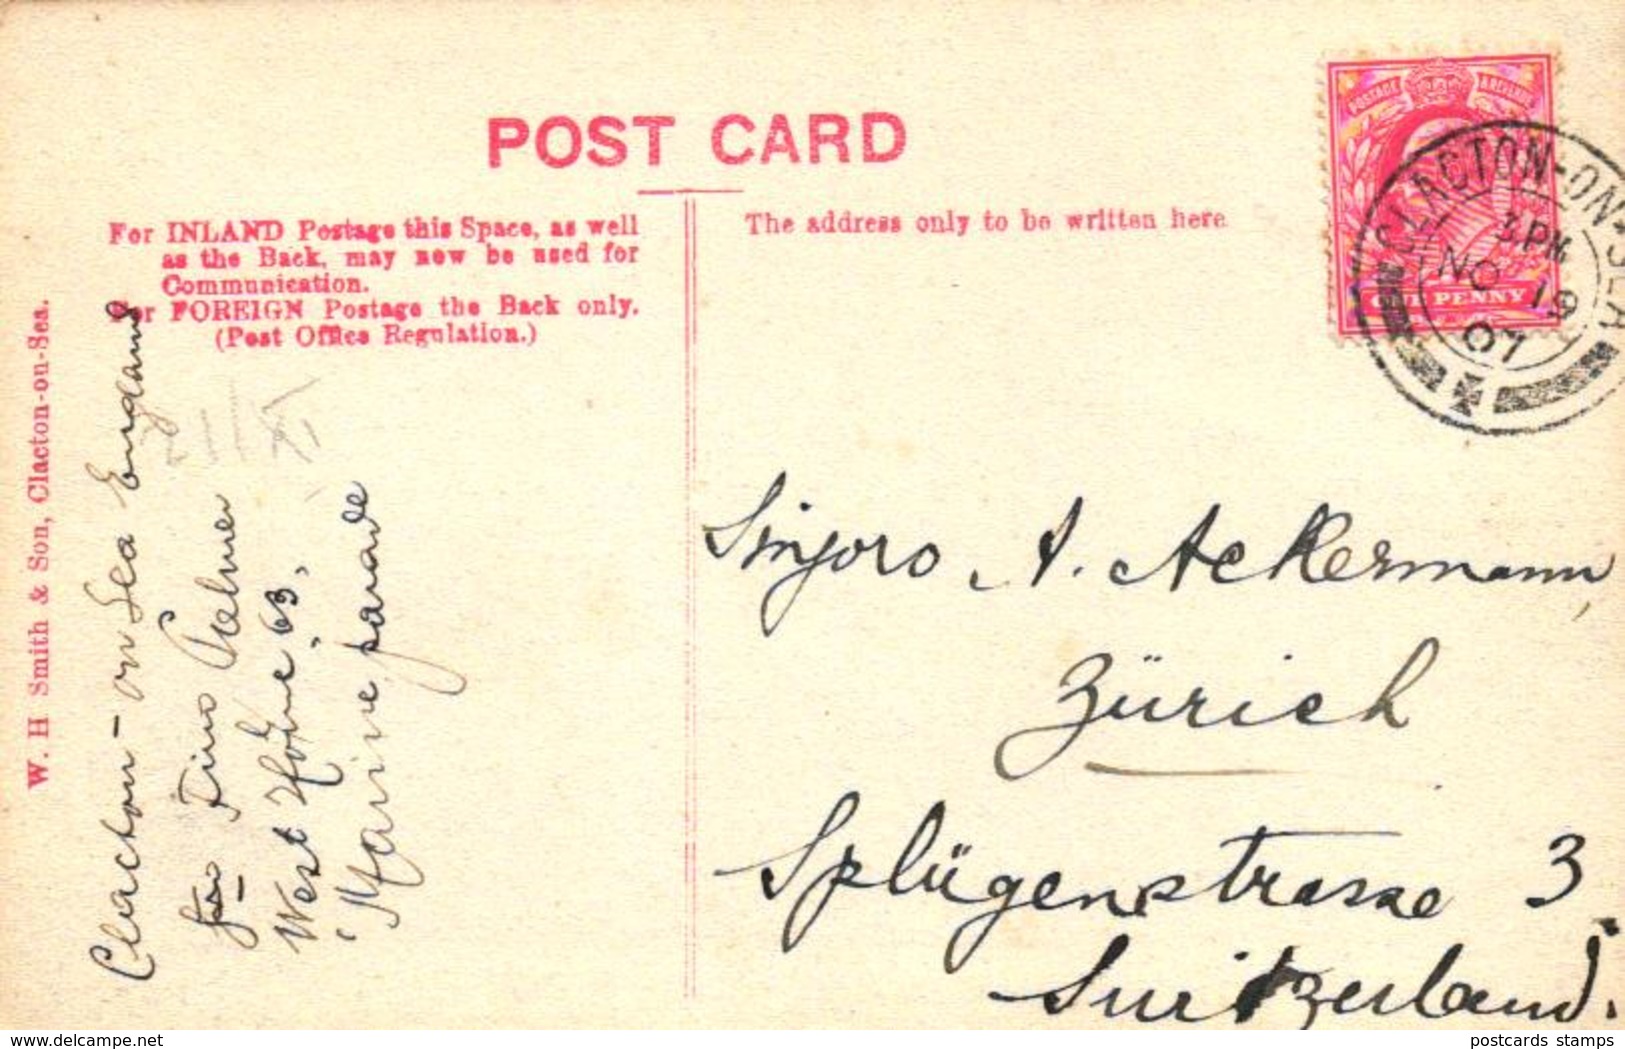 POST CARD
For INLAND Postage this Space, as well
as the Back, may now be used for
Communication.
For FOREIGN Postage the Back only.
(Post Office Regulation.)
The address only to be written here
POSTAGE & REVENUE
ONE PENNY
CLACTON-ON-SEA
3.PM
NO 19
07
W. H Smith & Son, Clacton-on-Sea.
Clacton-on Sea England
Fino
West 63,
Marine parade
Sinjoro A. Ackermann,
Zürich
Splügenstrasse 3.
Suitzerland.
www.delcampe.net
postcards stamps